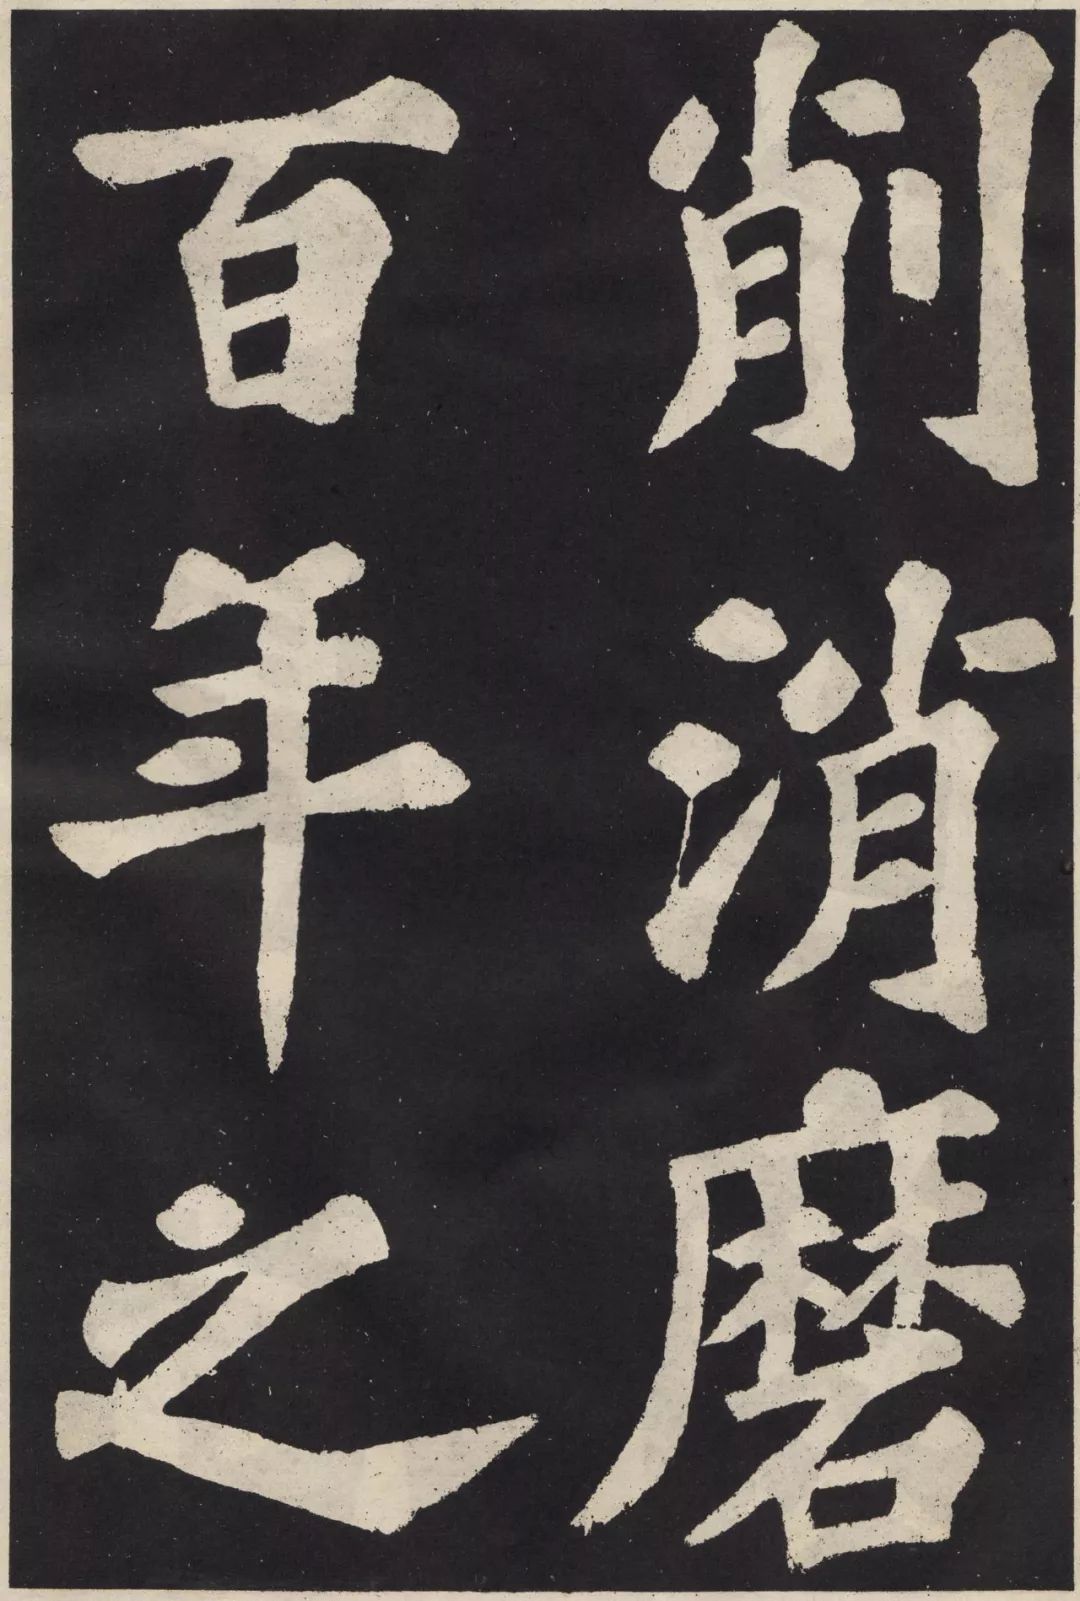 削消磨
百年之